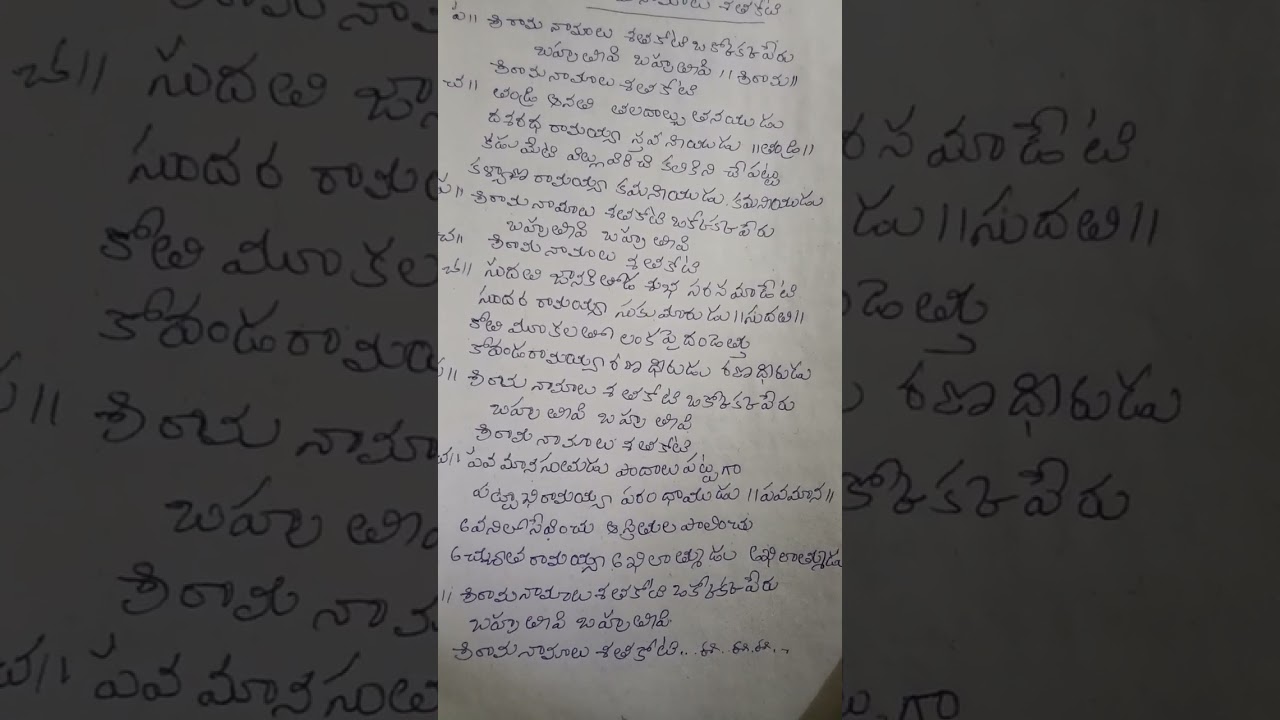 నామాలు శతకోటి
ప॥ శ్రీరామ నామాలు శతకోటి ఒక్కొక్కపేరు
బహుతీపి బహుతీపి ॥శ్రీరామ॥
శ్రీరామ నామాలు శతకోటి
చ॥ తండ్రి ఆనతి తలదాల్చు తనయుడు
దశరథ రామయ్యా స్తవనీయుడు ॥తండ్రి॥
కడుమేటి విల్లువిరిచి కలికిని చేపట్టు
కళ్యాణ రామయ్యా కమనీయుడు కమనీయుడు
ప॥ శ్రీరామ నామాలు శతకోటి ఒక్కొక్కపేరు
బహుతీపి బహుతీపి
చ॥ శ్రీరామ నామాలు శతకోటి
చ॥ సుదతి జానకితోడ శుభ సరసమాడేటి
సుందర రామయ్యా సుకుమారుడు ॥సుదతి॥
కోతి మూకలతో లంకపై దండెత్తు
కోదండరామయ్యా రణధీరుడు రణధీరుడు
ప॥ శ్రీరామ నామాలు శతకోటి ఒక్కొక్కపేరు
బహుతీపి బహుతీపి
శ్రీరామ నామాలు శతకోటి
చ॥ పవమానసుతుడు పాదాలు పట్టగా
పట్టాభిరామయ్యా పరంధాముడు ॥పవమాన॥
అవనిలో సేవించు ఆశ్రితుల పాలించు
అచ్యుత రామయ్యా అఖిలాత్ముడు అఖిలాత్ముడు
॥ శ్రీరామనామాలు శతకోటి ఒక్కొక్కపేరు
బహుతీపి బహుతీపి
శ్రీరామ నామాలు శతకోటి.. ఈ. ఈ.ఈ..